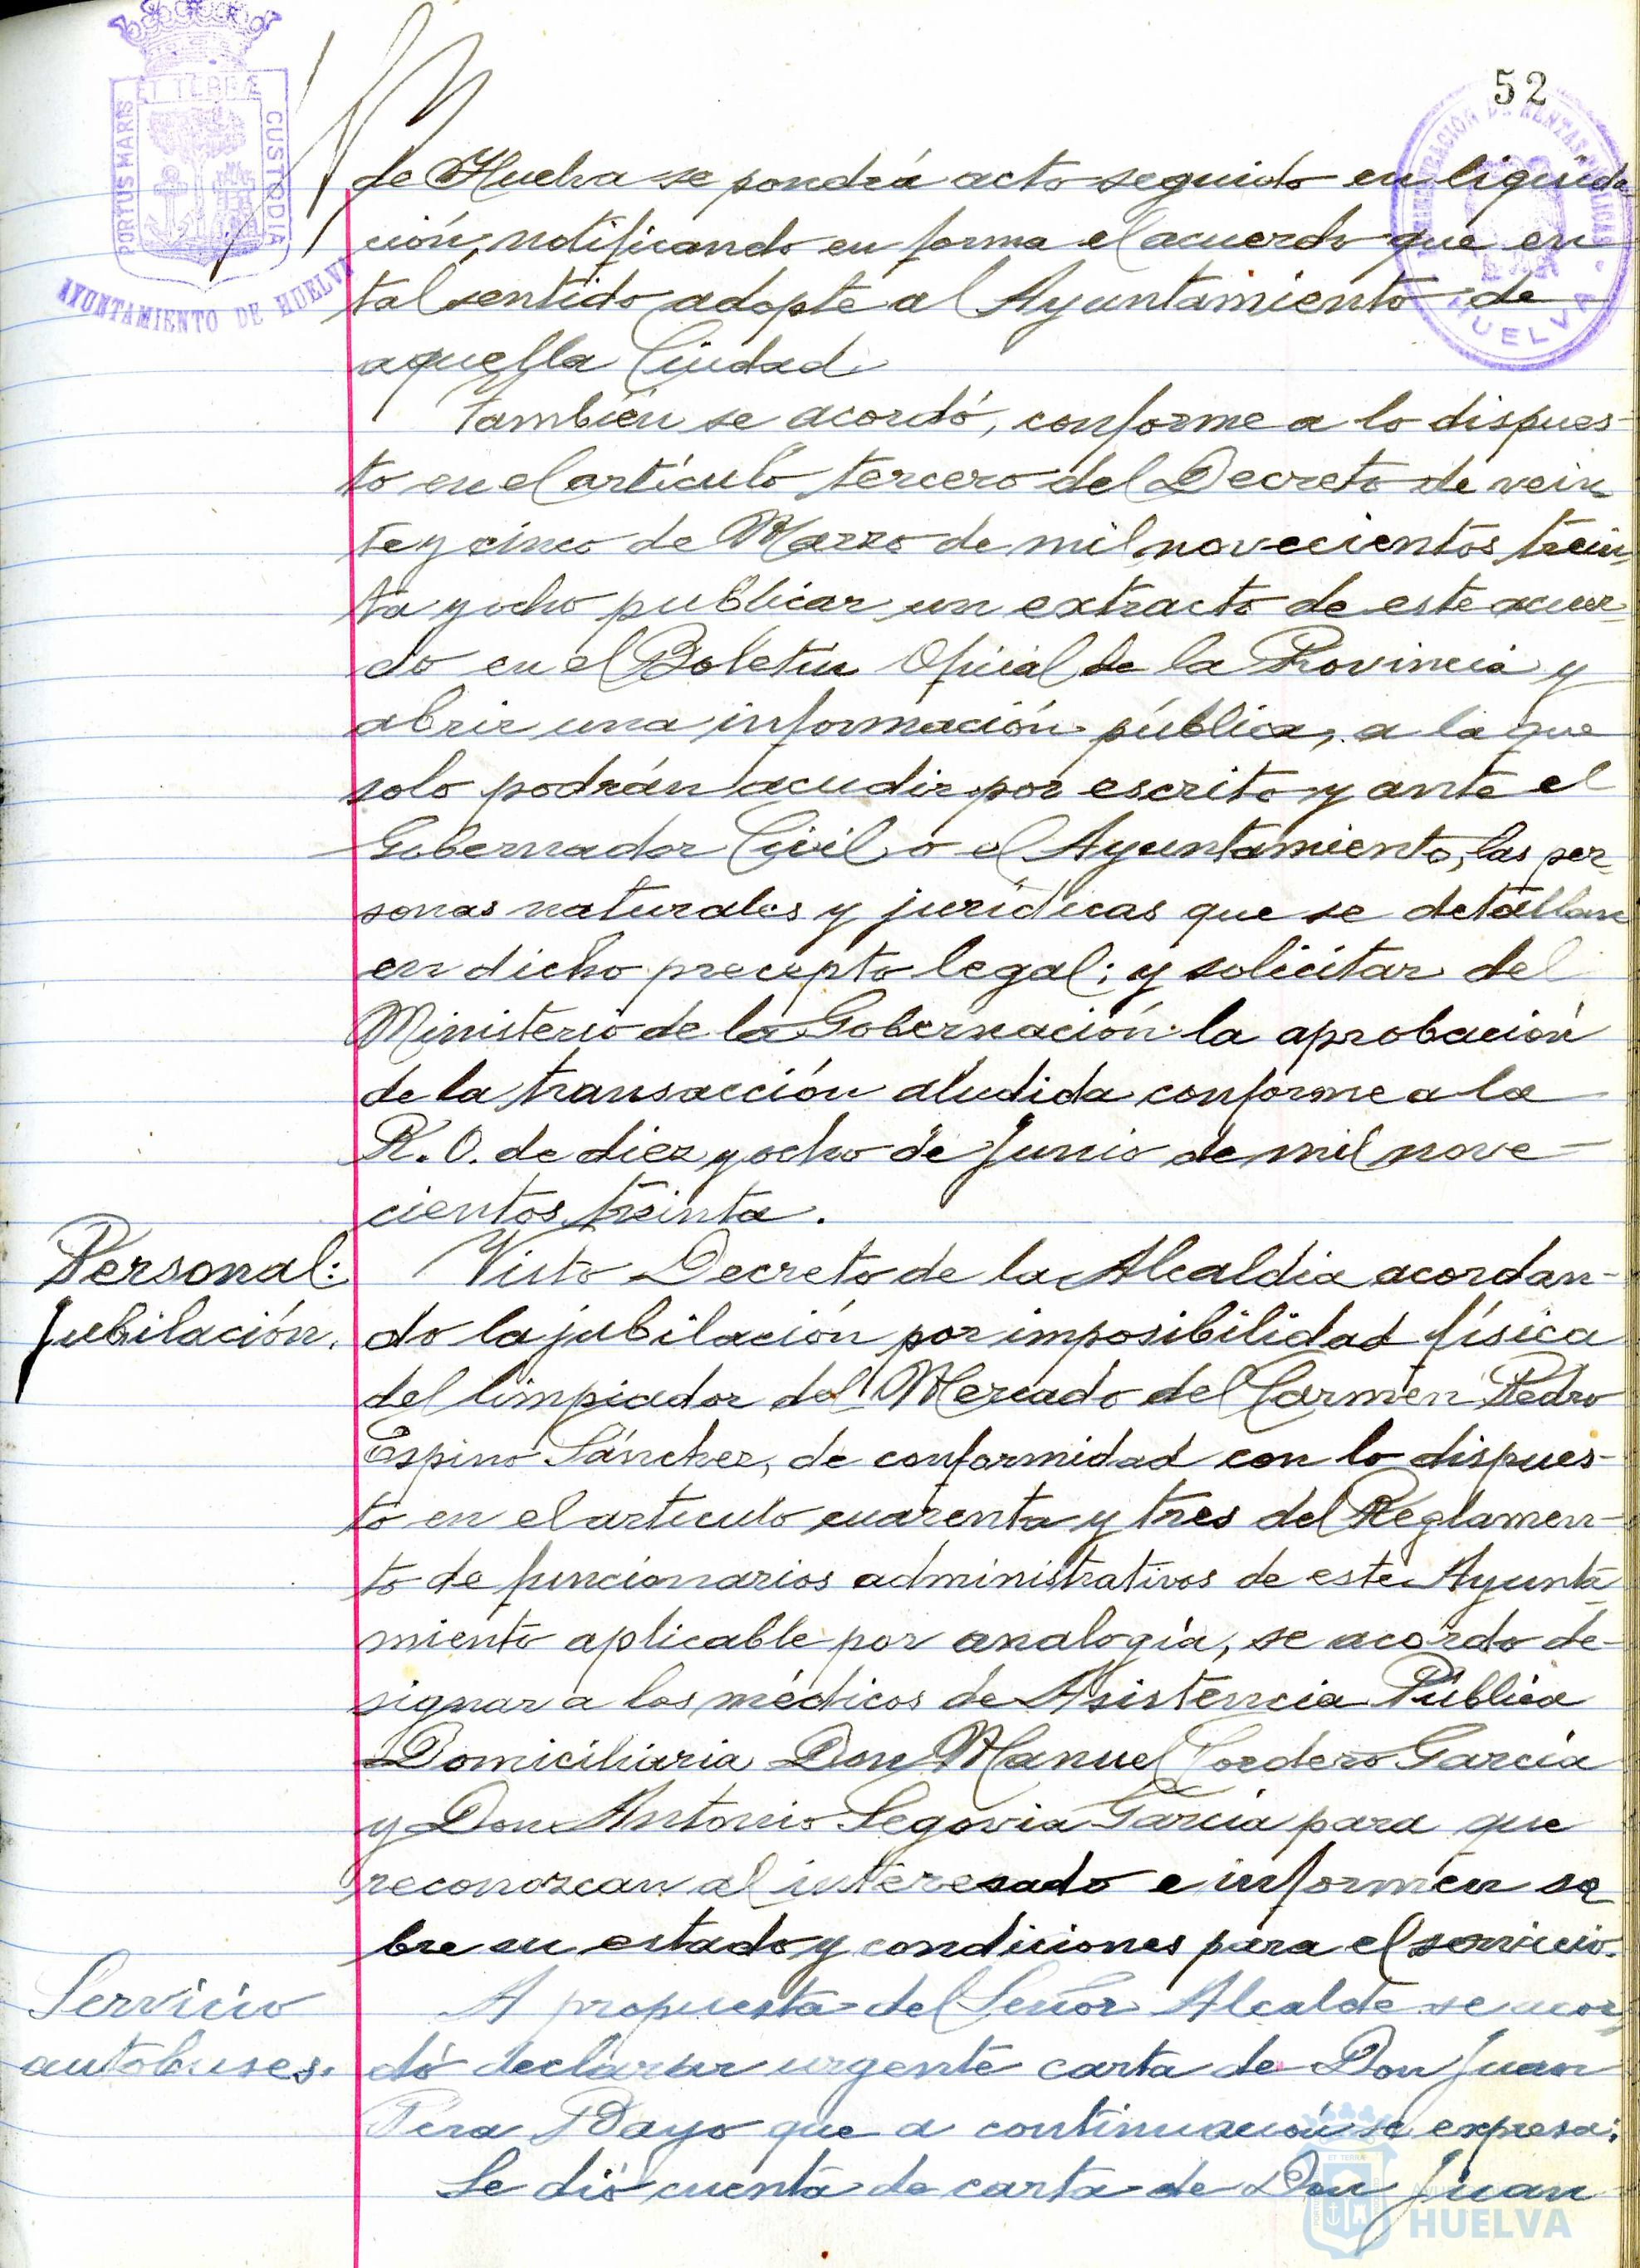 52
ET TERRÆ
PORTUS MARIS
CUSTODIA
AYUNTAMIENTO DE HUELVA
ADMINISTRACIÓN DE RENTAS PÚBLICAS
HUELVA
de Huelva se pondrá acto seguido en liquida
ción, notificando en forma el acuerdo que en
tal sentido adopte al Ayuntamiento de
aquella Ciudad.
También se acordó, conforme a lo dispues-
to en el artículo tercero del Decreto de vein
te y cinco de Marzo de mil novecientos trein
ta y ocho publicar un extracto de este acuer-
do en el Boletin Oficial de la Provincia y
abrir una información pública, a la que
solo podrán acudir por escrito y ante el
Gobernador Civil o el Ayuntamiento, las per-
sonas naturales y jurídicas que se detallan
en dicho precepto legal; y solicitar del
Ministerio de la Gobernación la aprobación
de la transacción aludida conforme a la
R. O. de diez y ocho de Junio de mil nove-
cientos treinta.
Personal:
Jubilación.
Visto Decreto de la Alcaldia acordan-
do la jubilación por imposibilidad física
del limpiador del Mercado del Carmen Pedro
Espino Sánchez, de conformidad con lo dispues-
to en el articulo cuarenta y tres del Reglamen-
to de funcionarios administrativos de este Ayunta-
miento aplicable por analogía, se acordo de-
signar a los médicos de Asistencia Pública
Domiciliaria Don Manuel Cordero García
y Don Antonio Segovia García para que
reconozcan al interesado e informen so
bre su estado y condiciones para el servicio.
Servicio
autobuses.
A propuesta del Señor Alcalde se acor
dó declarar urgente carta de Don Juan
Pera Bayo que a continuación se expresa:
Se dió cuenta de carta de Don Juan
HUELVA